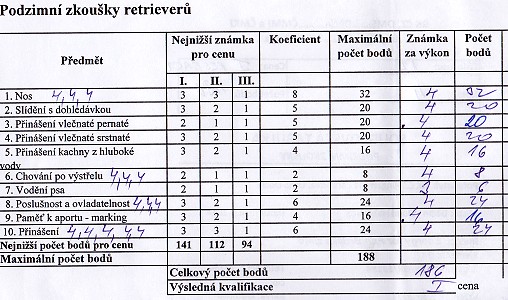 Podzimní zkoušky retrieverů
Předmět Nejnižší známka pro cenu Koeficient Maximální počet bodů Známka za výkon Počet bodů
I. II. III.
1. Nos 4, 4, 4 3 3 1 8 32 4 32
2. Slídění s dohledávkou 3 2 1 5 20 4 20
3. Přinášení vlečnaté pernaté 3 2 1 5 20 4 20
4. Přinášení vlečnaté srstnaté 3 2 1 5 20 4 20
5. Přinášení kachny z hluboké vody 3 2 1 4 16 4 16
6. Chování po výstřelu 4, 4, 4 2 1 1 2 8 4 8
7. Vodění psa 2 1 1 2 8 3 6
8. Poslušnost a ovladatelnost 4, 4, 4 3 2 1 6 24 4 24
9. Paměť k aportu - marking 3 2 1 4 16 4 16
10. Přinášení 4, 4, 4, 4, 4 3 3 1 6 24 4 24
Nejnižší počet bodů pro cenu 141 112 94
Maximální počet bodů 188
Celkový počet bodů 186
Výsledná kvalifikace I cena